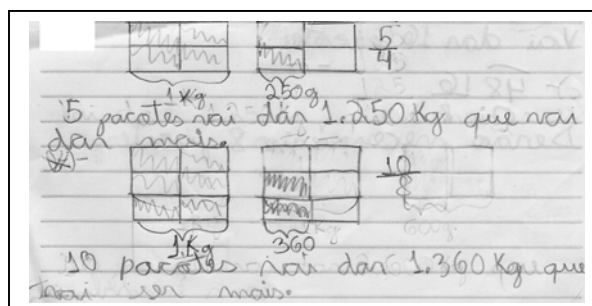 5
4
1 Kg 250g
5 pacotes vai dar 1.250 Kg que vai
dar mais.
10
8
1.Kg 360
10 pacotes vai dar 1.360 Kg que
vai ser mais.